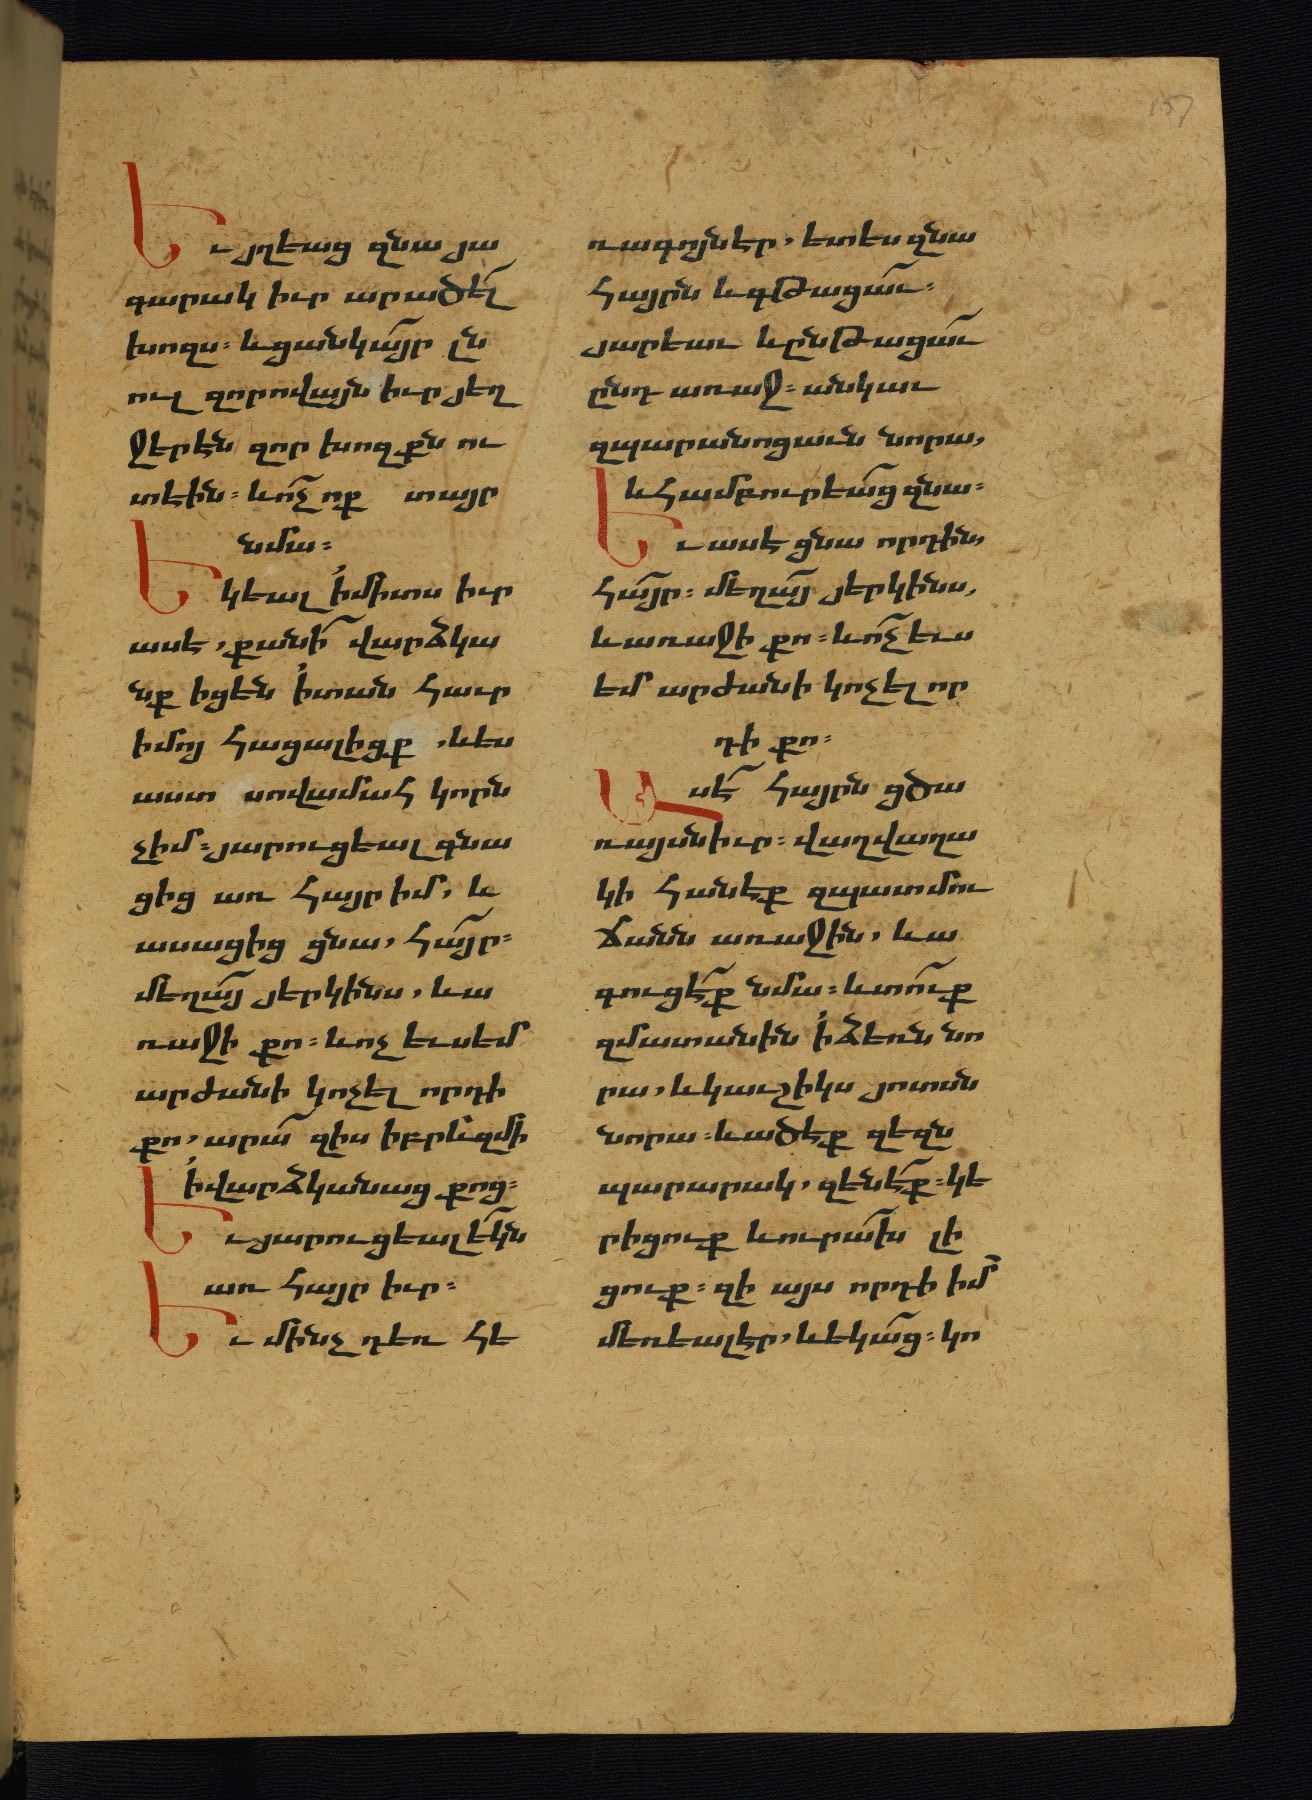 157
Եւ յղեաց զնա յա
գարակ իւր արածել՛
խոզս։ և ցանկա՛յր լն
ուլ զորովայն իւր յեղ
ջերէն զոր խոզքն ու
տէին։ և ո՛չ ոք տայր
նմա։
Եկեալ ի՛միտս իւր
ասէ, քանի՛ վարձկա
նք իցեն ի՛տան հաւր
իմոյ հացալիցք, և ես
աստ սովամահ կորն
չիմ։ յարուցեալ գնա
ցից առ հայր իմ, և
ասացից ցնա, հա՛յր։
մեղա՛յ յերկինս, և ա
ռաջի քո։ և ոչ եւս եմ
արժանի կոչել որդի
քո, արա՛ զիս իբրև զմի
ի՛վարձկանաց քոց։
Եւ յարուցեալ ե՛կն
առ հայր իւր։
Եւ մինչ դեռ հե
ռագոյն էր, ետես զնա
հայրն և գթացա՛ւ։
յարեաւ և ընթացա՛ւ
ընդ առաջ։ անկաւ
զպարանոցաւն նորա,
և համբուրեա՛ց զնա։
Եւ ասէ ցնա որդին,
հա՛յր։ մեղա՛յ յերկինս,
և առաջի քո։ և ո՛չ եւս
եմ արժանի կոչել որ
դի քո։
Ասէ՛ հայրն ցծա
ռայսն իւր։ վաղվաղա
կի հանէք զպատմու
ճանն առաջին, և ա
գուցէ՛ք նմա։ և տո՛ւք
զմատանին ի՛ձեռն նո
րա, և կաւշիկս յոտսն
նորա։ և ածէք զեզն
պարարակ, զենէ՛ք։ կե
րիցուք և ուրա՛խ լի
ցուք։ զի այս որդի իմ՛
մեռեալ էր, և եկա՛ց։ կո